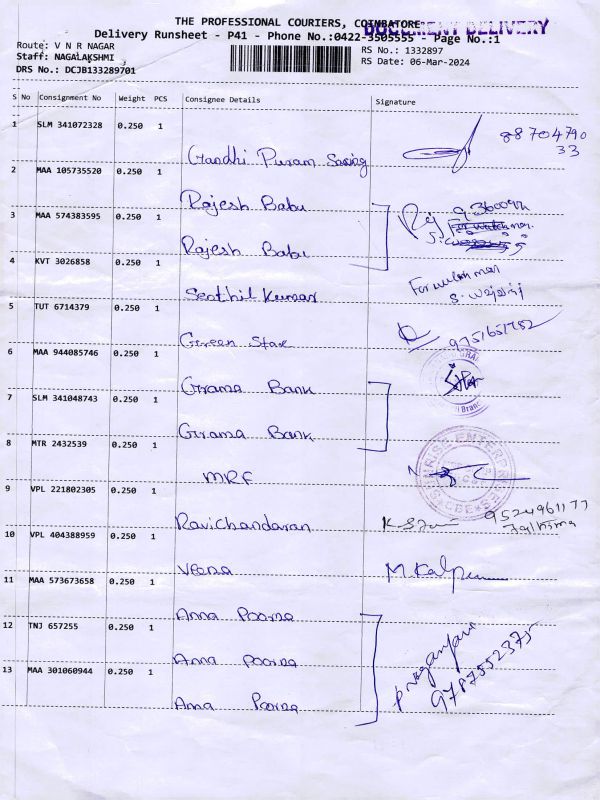 THE PROFESSIONAL COURIERS, COIMBATORE
DOCUMENT DELIVERY
Delivery Runsheet - P41 - Phone No.:0422-3505555 - Page No.:1
Route: V N R NAGAR
RS No.: 1332897
Staff: NAGALAKSHMI
RS Date: 06-Mar-2024
DRS No.: DCJB133289701
S No Consignment No Weight PCS Consignee Details Signature
1 SLM 341072328 0.250 1
8870479033
Gandhi Puram
2 MAA 105735520 0.250 1
Rajesh Babu
3 MAA 574383595 0.250 1
Rajesh Babu
4 KVT 3026858 0.250 1
Senthil Kumar
5 TUT 6714379 0.250 1
9751651782
Green Star
6 MAA 944085746 0.250 1
Grama Bank
7 SLM 341048743 0.250 1
Grama Bank
8 MTR 2432539 0.250 1
MRF
9 VPL 221802305 0.250 1
9524961177
Ravichandaran
10 VPL 404388959 0.250 1
Veena
M. Kalp
11 MAA 573673658 0.250 1
Anna Poorna
12 TNJ 657255 0.250 1
Anna Poorna
13 MAA 301060944 0.250 1
9787552375
Anna Poorna